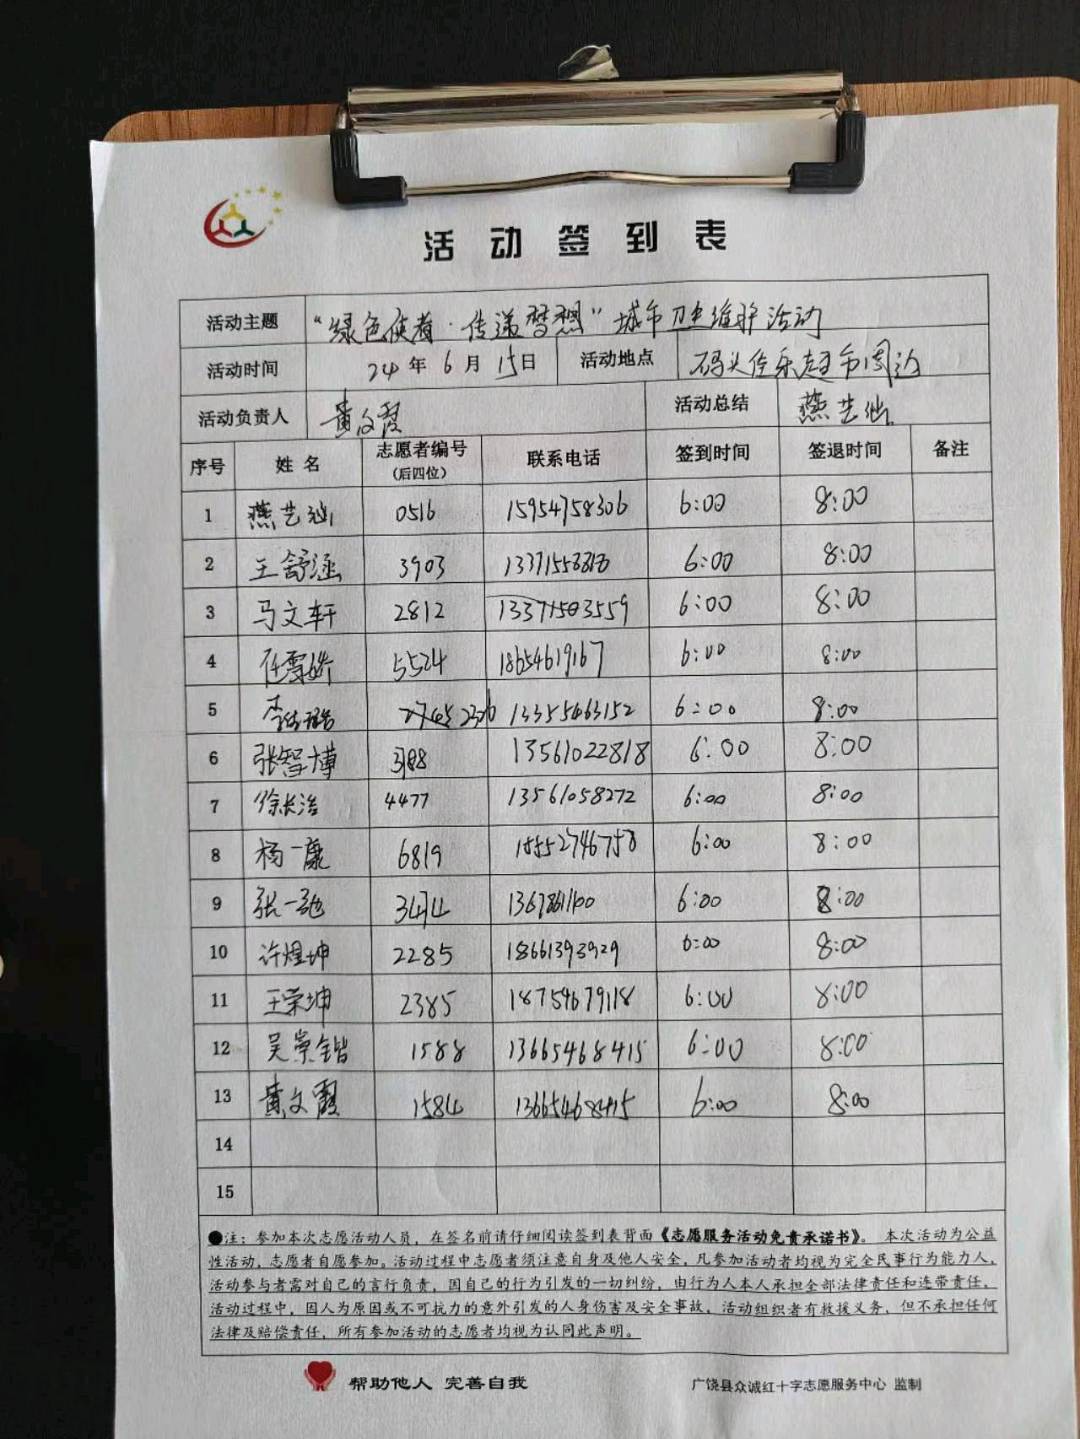 活动签到表
活动主题 “绿色使者·传递梦想”城市卫生维护活动
活动时间 24年6月15日 活动地点 码头佳乐超市周边
活动负责人 黄文霞 活动总结 燕艺灿
序号 姓名 志愿者编号(后四位) 联系电话 签到时间 签退时间 备注
1 燕艺灿 0516 15954758306 6:00 8:00
2 王舒涵 3903 6:00 8:00
3 马文轩 2812 13371503559 6:00 8:00
4 任雪娇 5524 18654619167 6:00 8:00
5 2326 13355463152 6:00 8:00
6 张智博 13561022818 6:00 8:00
7 徐长治 4477 13561058272 6:00 8:00
8 杨一康 6819 15552746758 6:00 8:00
9 张一弛 6:00 8:00
10 许煜坤 2285 18661393929 6:00 8:00
11 王荣坤 2385 18754679118 6:00 8:00
12 吴崇锴 1588 13665468415 6:00 8:00
13 黄文霞 1584 13665468415 6:00 8:00
14
15
●注：参加本次志愿活动人员，在签名前请仔细阅读签到表背面《志愿服务活动免责承诺书》。本次活动为公益
性活动，志愿者自愿参加。活动过程中志愿者须注意自身及他人安全，凡参加活动者均视为完全民事行为能力人，
活动参与者需对自己的言行负责，因自己的行为引发的一切纠纷，由行为人本人承担全部法律责任和连带责任。
活动过程中，因人为原因或不可抗力的意外引发的人身伤害及安全事故，活动组织者有救援义务，但不承担任何
法律及赔偿责任，所有参加活动的志愿者均视为认同此声明。
帮助他人 完善自我 广饶县众诚红十字志愿服务中心 监制